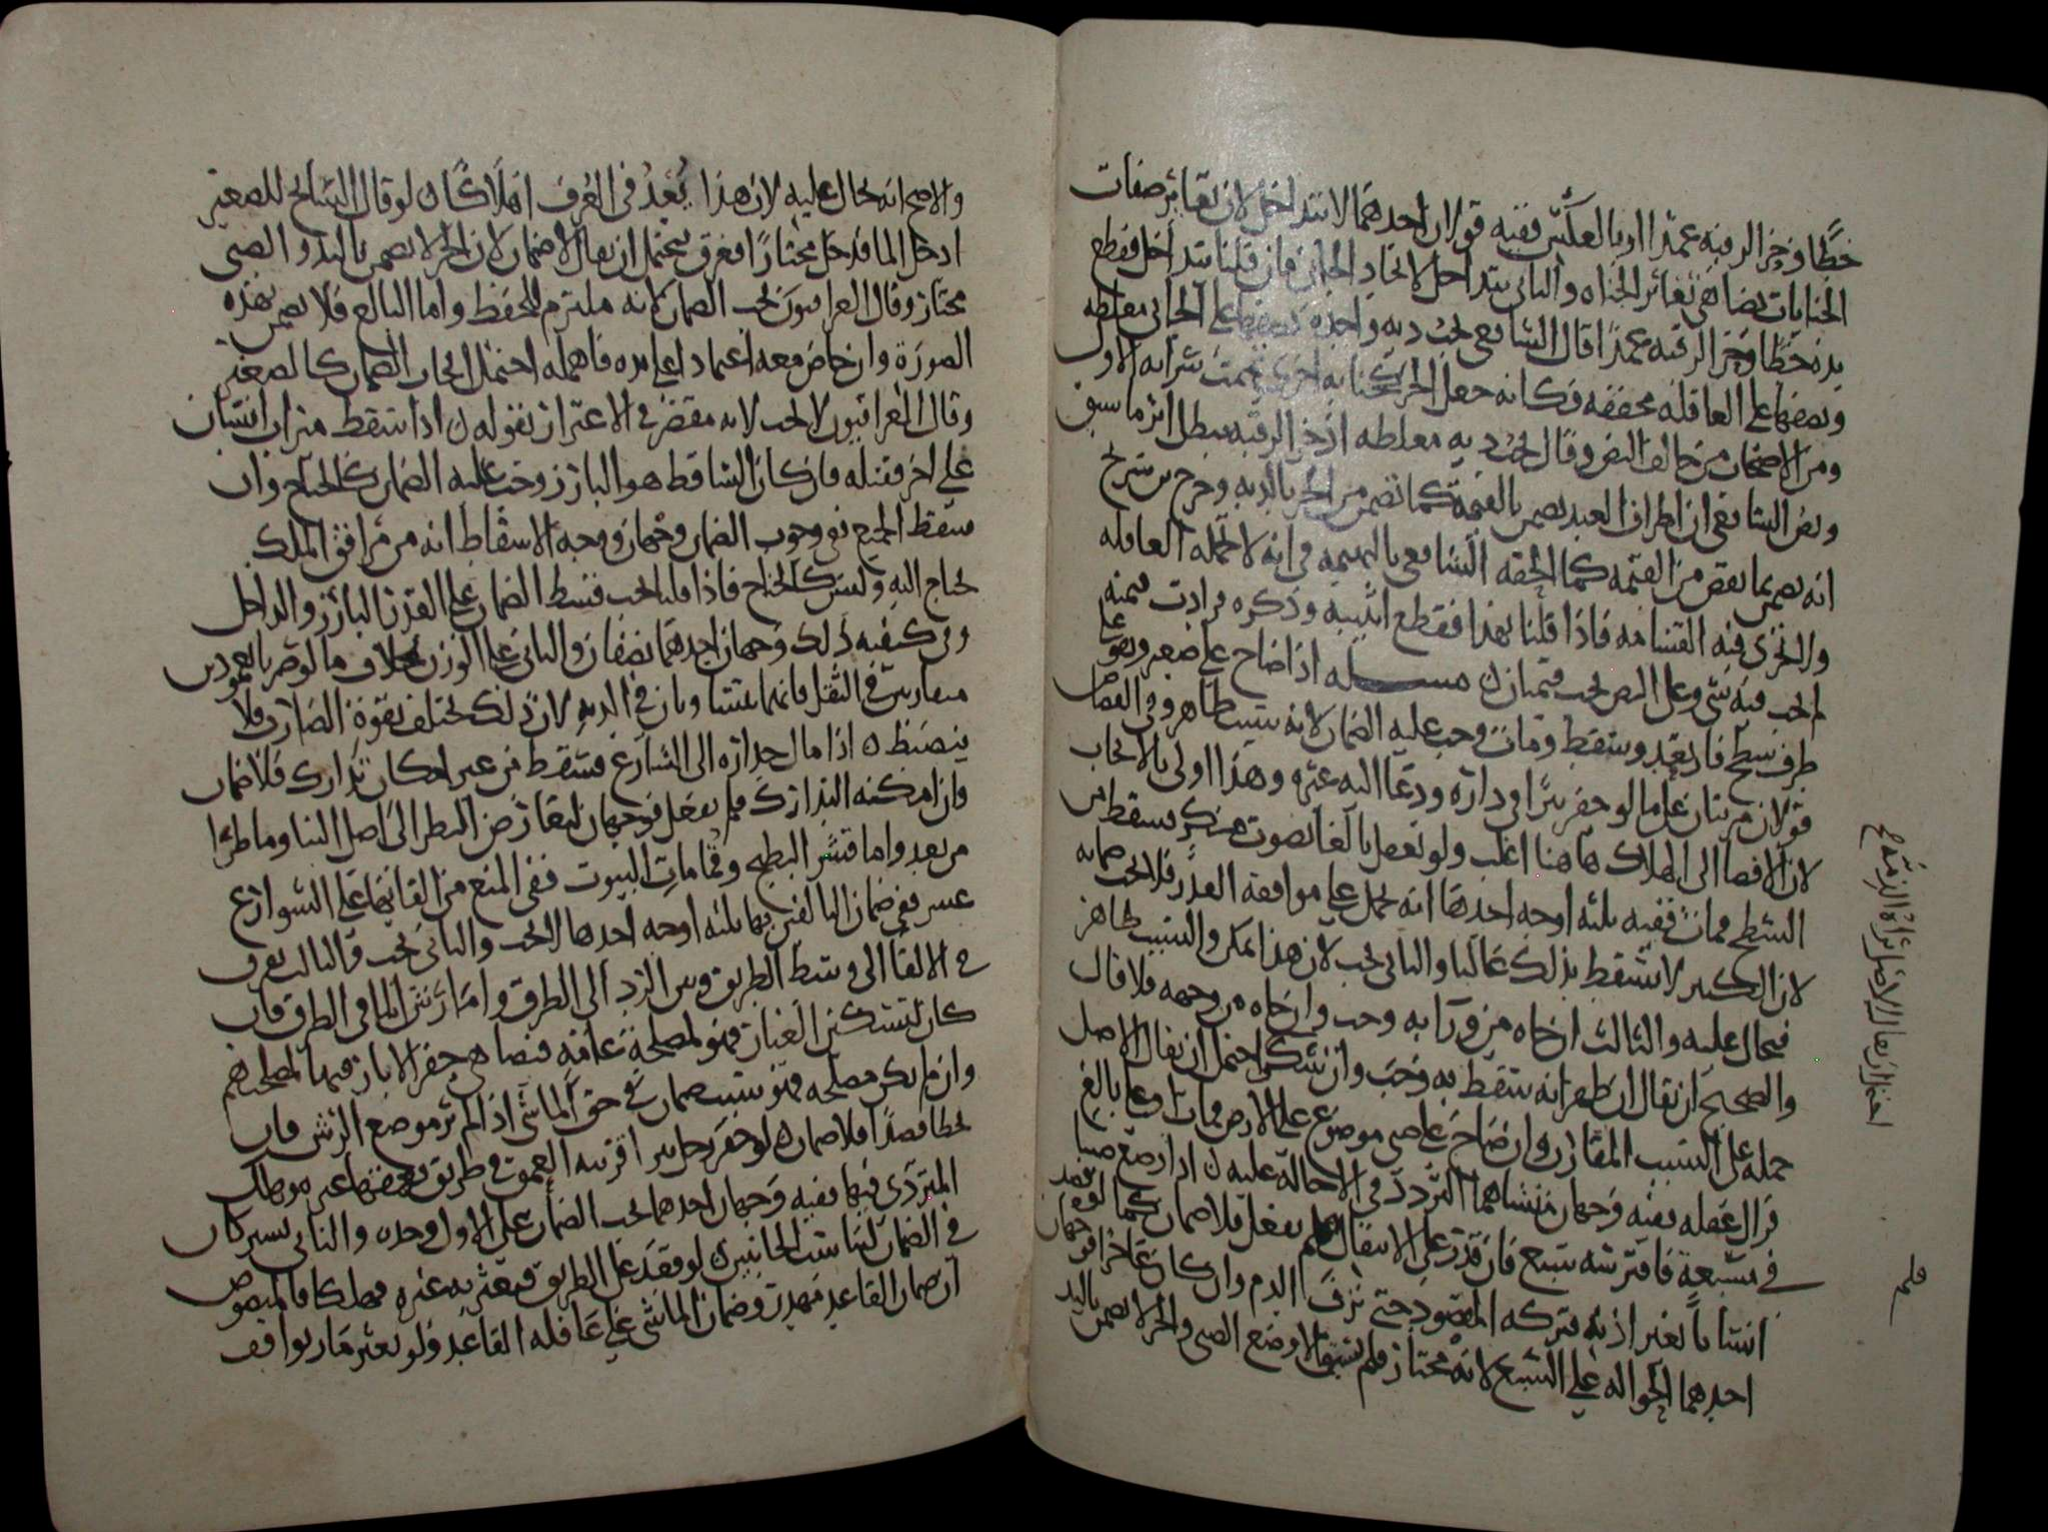 خطًا وحز الرقبه عمدًا او بالعكس ففيه قولان احدهما لا تتداخل لان تغاير صفات
الجنايات يضاهي تغاير الجناه والثاني يتداخل لاتحاد الجاني فان قلنا يتداخل فقطع
يده خطا وحز الرقبه عمدًا قال الشافعي تجب ديه واحده نصفها على الجاني مغلظه
ونصفها على العاقله مخففه فكانه جعل الحز كجنايه اخرى تممت سرايه الاول
ومن الاصحاب من خالف النص وقال تجب ديه مغلظه اذ حز الرقبه يبطل اثر ما سبق
ونص الشافعي ان اطراف العبد تضمن بالقيمة كما تضمن من الحر بالديه وخرج بن سريج
انه يضمن بما نقص من القيمه كما الحقه الشافعي بالبهيمه في انه لا تحمله العاقله
ولا تجزي فيه القسامه فاذا قلنا بهذا فقطع انثييه وذكره فزادت قيمته
لم يجب فيه شي وعلى النص يجب قيمتان ن مسـله اذا صاح على صغير وهو على
طرف سطح فارتعد وسقط ومات وجب عليه الضمان لانه تسبب ظاهر وفي القصاص
قولان مرتبان على ما لو حفر بيرًا في داره ودعا اليه غيره وهذا اولى بالايجاب
لان الافضا الى الهلاك ها هنا اغلب ولو تغفل بالغا بصوت منكر فسقط من
السطح فمات ففيه ثلثه اوجه احدها انه يحمل على موافقه القدر فلا يجب ضمانه
لان الكبير لا يسقط بذلك غالبا والثاني يجب لان هذا ممكن والسبب ظاهر
فيحال عليه والثالث ان جاه من ورآيه وجب وان جاه من وجهه فلا قال
والصحيح ان يقال ان ظهر انه سقط به وجب وان شككوا احتمل ان يقال الاصل
حمله على السبب المقارن وان صاح على صبي موضوع على الارض فمات او على بالغ
فزال عقله ففيه وجهان منشاهما التردد في الاحالة عليه ن اذا وضع صبيا
في مسبعة فافترسه سبع فان قدر على الانتقال فلم يفعل فلا ضمان كما لو فصد
انسانا بغير اذنه فتركه المفصود حتى نزف الدم وان كان عاجزا فوجهان
احدهما الحواله على السبع لانه مختار فلم يسبق الا وضع الصبي والحر لا يضمن باليد
والاصح انه يحال عليه لان هذا يُعَدُّ في العُرف اهلاكًا ن لو قال السابح للصغير
ادخل الما فدخل مختارًا فغرق يحتمل ان يقال لا ضمان لان الحر لا يضمن باليد والصبي
مختار وقال العراقيون يجب الضمان لانه ملتزم للحفظ واما البالغ فلا يضمن بهذه
الصورة وان خاض معه اعتمادا على يده فاهمله احتمل ايجاب الضمان كالصغير
وقال العراقيون لا يجب لانه مقصر في الاعتزاز بقوله ن اذا سقط ميزاب انسان
على اخر فقتله فان كان الساقط هو البارز وجب عليه الضمان كالجناح وان
سقط الجميع ففي وجوب الضمان وجهان ووجه الاسقاط انه من مرافق الملك
يحتاج اليه وليس كالجناح فاذا قلنا يجب فيسقط الضمان على القدر البارز والداخل
وفي كيفيه ذلك وجهان احدهما نصفان والثاني على الوزن بخلاف ما لو ضربه بالعمودين
متفاوتين في الثقل فانهما يتساويان في الديه لان ذلك يختلف بقوة الضارب فلا
ينضبط ن اذا مال جداره الى الشارع فسقط من غير امكان تدارك فلا ضمان
وان امكنه التدارك فلم يفعل فوجهان لتعارض النظر الى اصل البنا وما طرا
من بعد واما قشر البطيخ وقمامات البيوت ففي المنع من القائها على الشوارع
عسر ففي ضمان التالف بها ثلثه اوجه احدها لا يجب والثاني يجب والثالث يفرق
في الالقا الى وسط الطريق وبين الرد الى الطرف واما رش الما في الطرق فان
كان لتسكين الغبار فهو لمصلحة عامة فيضاهي حفر الابار فيها لمصلحتهم
وان لم يكن مصلحه فهو سبب ضمان في حق الماشي اذا لم ير موضع الرش فان
تخطا قصدًا فلا ضمان ن لو حفر رجل بيرا قريبه العمق في طريق فعمقها غيره فهلك
المتردي فيها ففيه وجهان احدهما يجب الضمان على الاول وحده والثاني يشتركان
في الضمان لتناسب الجانبين ن لو قعد على الطريق فيعثر به غيره فهلكا فالمنصوص
ان ضمان القاعد مهدر وضمان الماشي على عاقله القاعد ولو تعثر مار بواقف